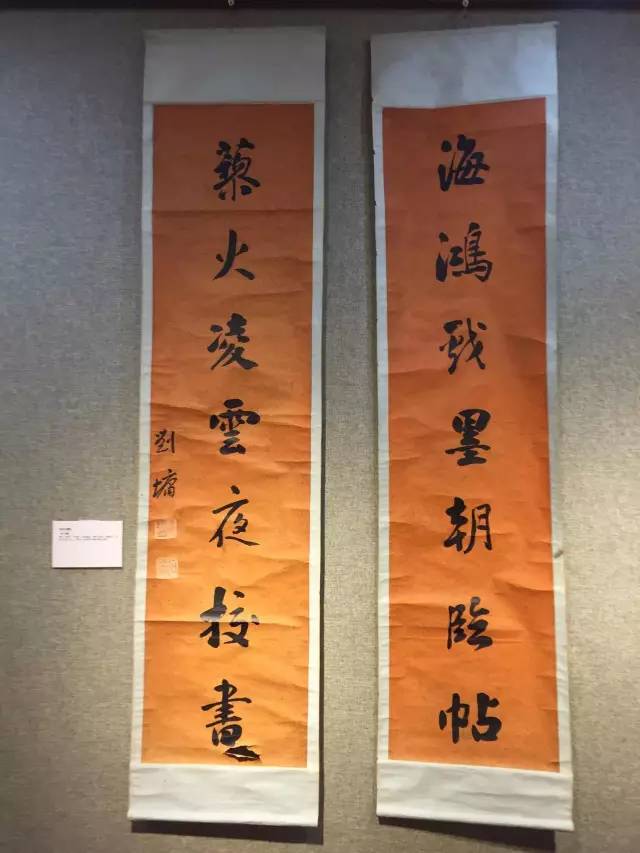 海鴻戲墨朝臨帖
藜火凌雲夜校書
劉墉